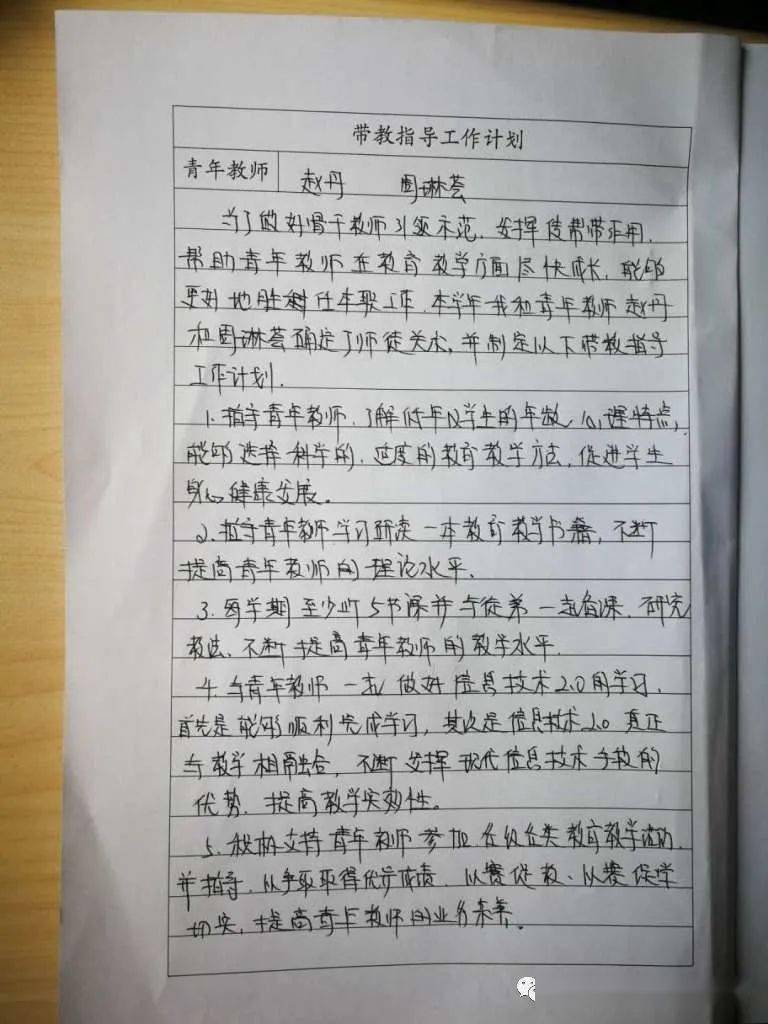 带教指导工作计划
青年教师 赵丹 周琳荟
为了做好骨干教师引领示范，发挥传帮带作用，
帮助青年教师在教育教学方面尽快成长，能够
更好地胜任本职工作，本学年我和青年教师赵丹
和周琳荟确定了师徒关系，并制定以下带教指导
工作计划．
1．指导青年教师，了解低年段学生的年龄、心理特点，
能够选择科学的、适度的教育教学方法，促进学生
身心健康发展。
2．指导青年教师学习研读一本教育教学书籍，不断
提高青年教师的理论水平．
3．每学期至少听5节课并与徒弟一起备课，研究
教法、不断提高青年教师的教学水平．
4．与青年教师一起做好信息技术2.0的学习，
首先是能够顺利完成学习，其次是信息技术2.0真正
与教学相融合，不断发挥现代信息技术手段的
优势，提高教学实效性。
5．积极支持青年教师参加各级各类教育教学活动，
并指导，以争取取得优异成绩，以赛促教、以赛促学
切实，提高青年教师的业务素养。